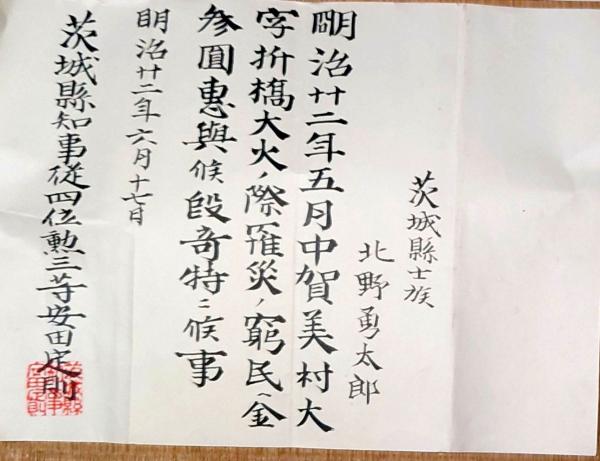 茨城縣士族
北野勇太郎
明治廿二年五月中賀美村大
字折橋大火ノ際罹災ノ窮民ヘ金
参圓恵與候段奇特ニ候事
明治廿二年六月十七日
茨城縣知事従四位勲三等安田定則